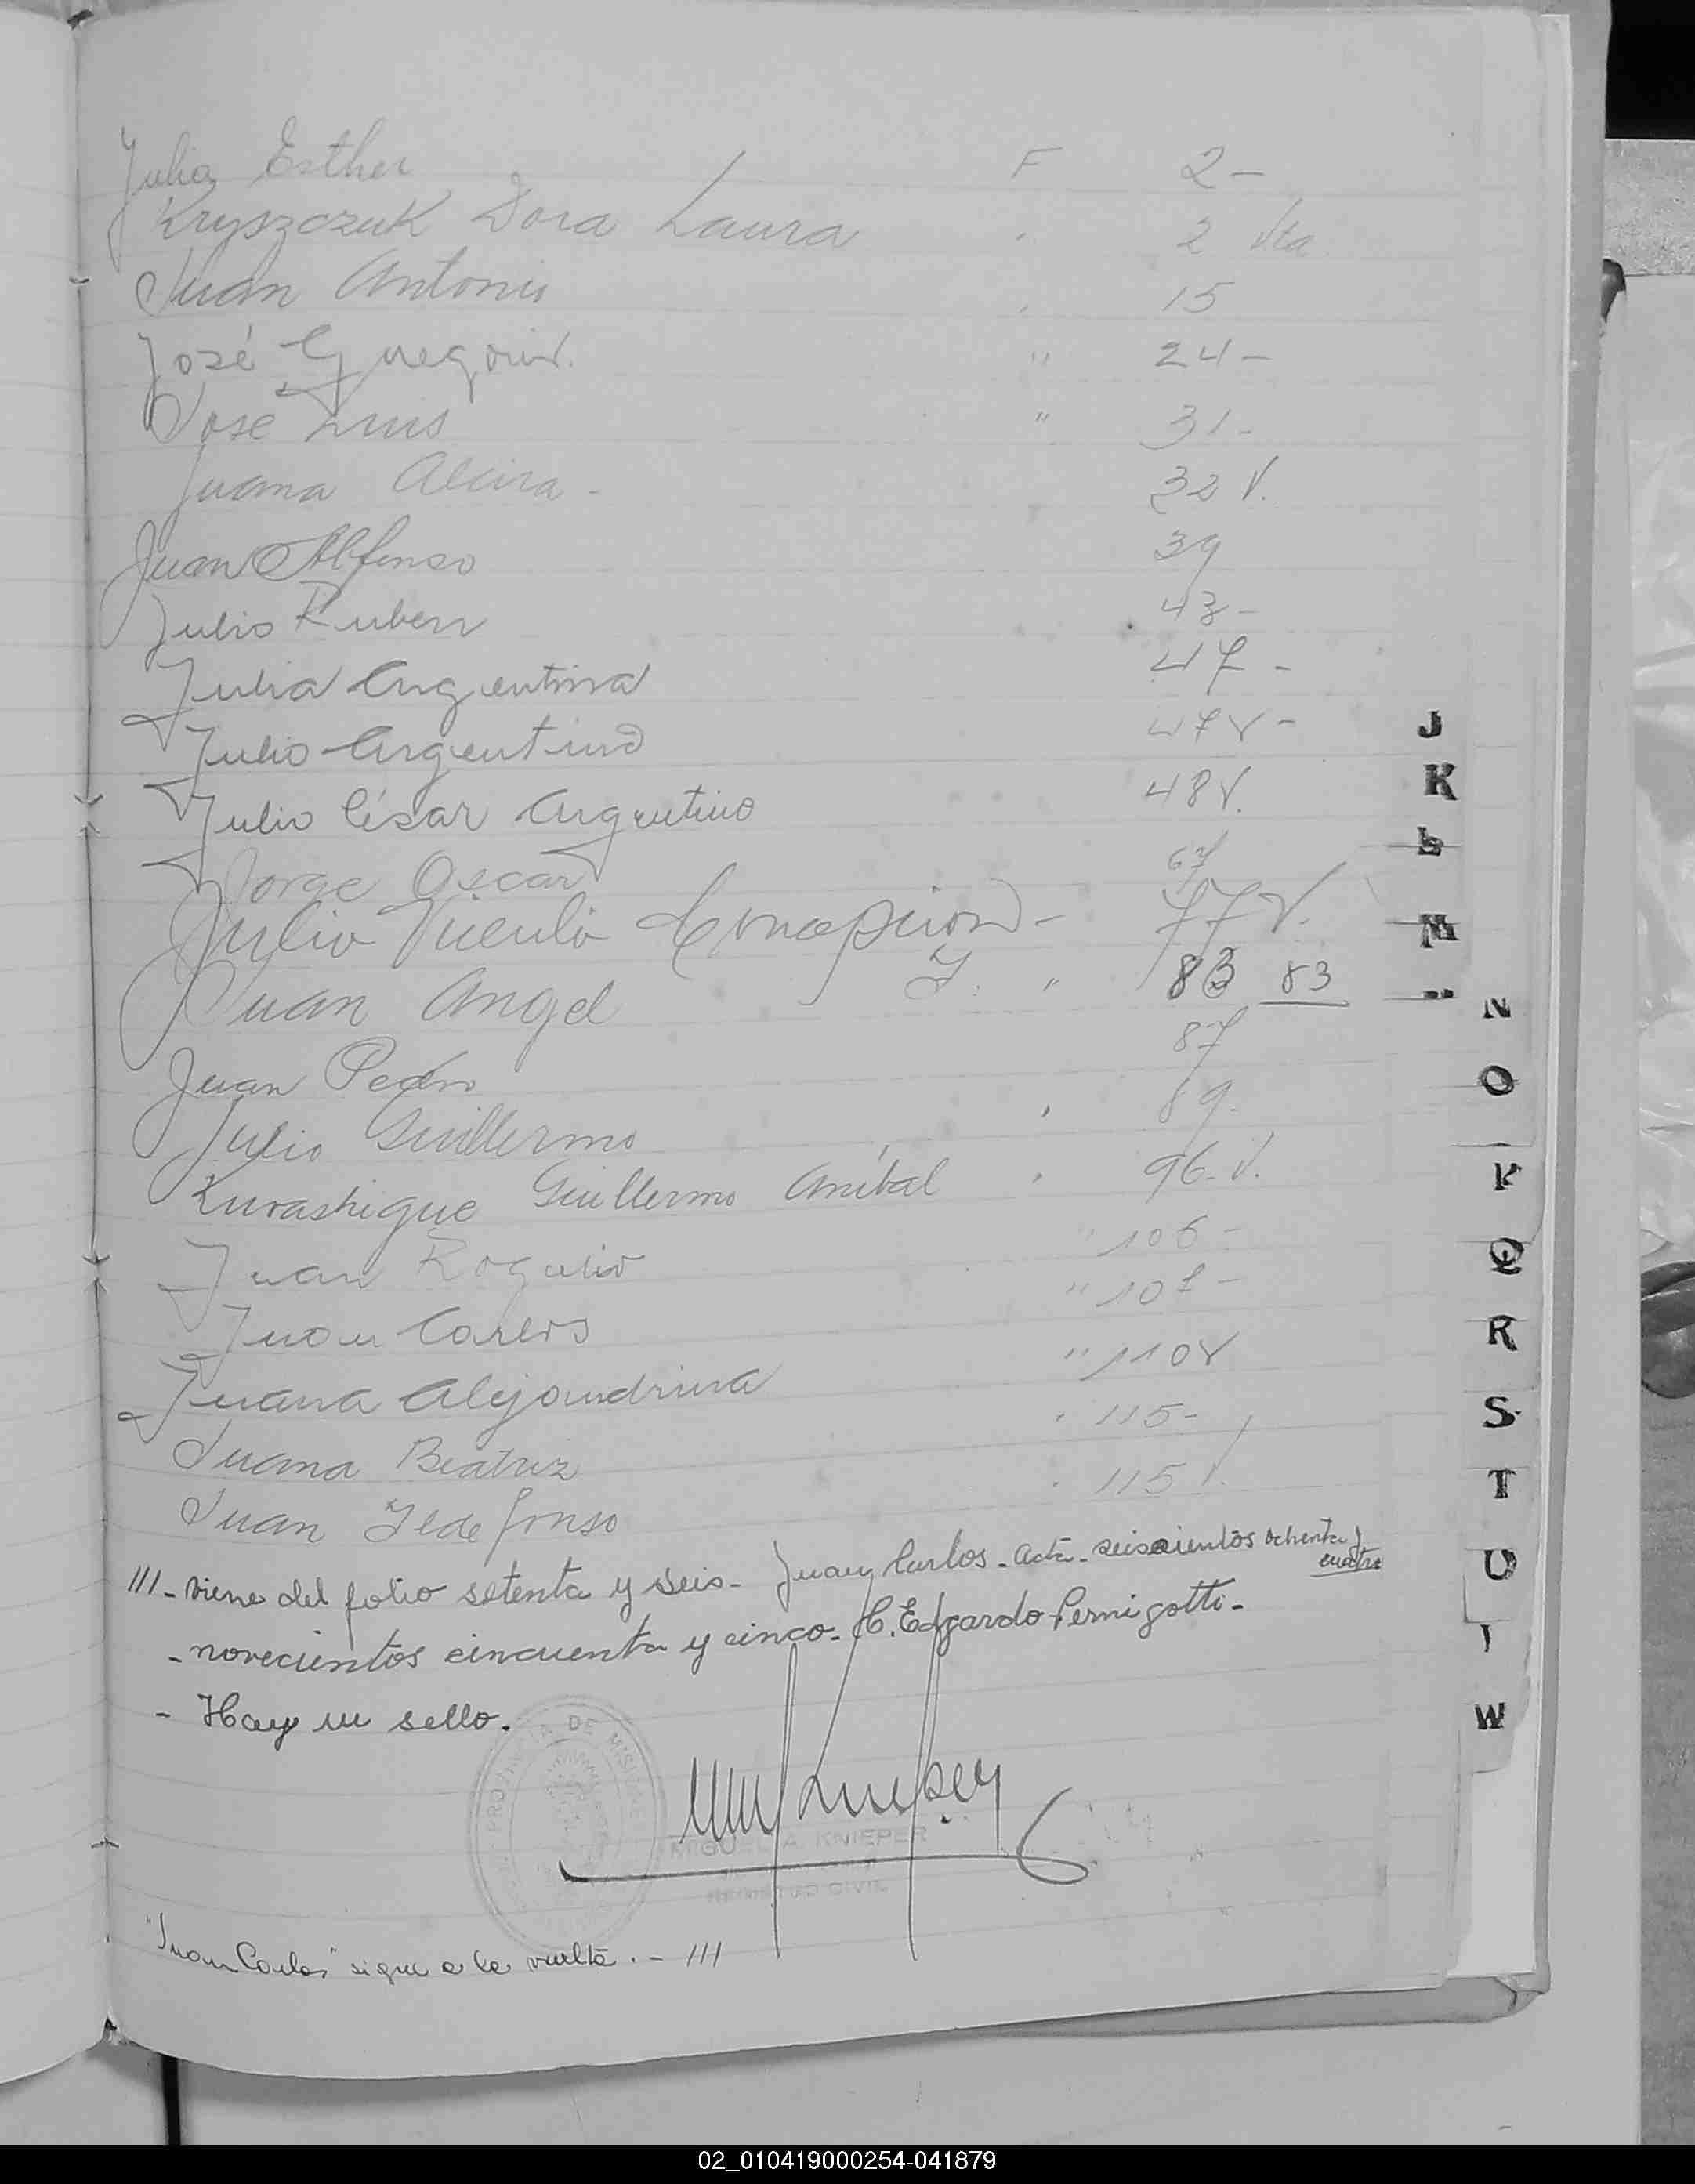 Julia Esther F 2-
Kryszczuk Dora Laura 2 Vta
Juan Antonio 15
José Gregorio " 24-
José Luis " 31-
Juana Alcira - 32 V.
Juan Alfonso 39
Julio Ruben 43-
Julia Argentina 47-
Julio Argentino 47V-
Julio César Argentino 48V.
Jorge Oscar 67
Julio Concepcion - 77V.
Juan Angel " 83 83
Juan Pedro 87
Julio Guillermo 89-
Kurashigue Guillermo Aníbal 96-V.
Juan Rogelio " 106-
Juan Carlos " 107-
Juana Alejandrina " 110V
Juana Beatriz 115-
Juan Ildefonso 115V.
///-viene del folio setenta y seis- Juan Carlos-acta-seiscientos ochenta y
cuatro
-novecientos cincuenta y cinco-H. Edgardo Pernigotti-
- Hay un sello.
PROVINCIA DE MISIONES
MIGUEL A. KNIEPER
REGISTRO CIVIL
"Juan Carlos" sigue a la vuelta.- ///
J
K
L
M
N
O
P
Q
R
S
T
U
W
02_010419000254-041879